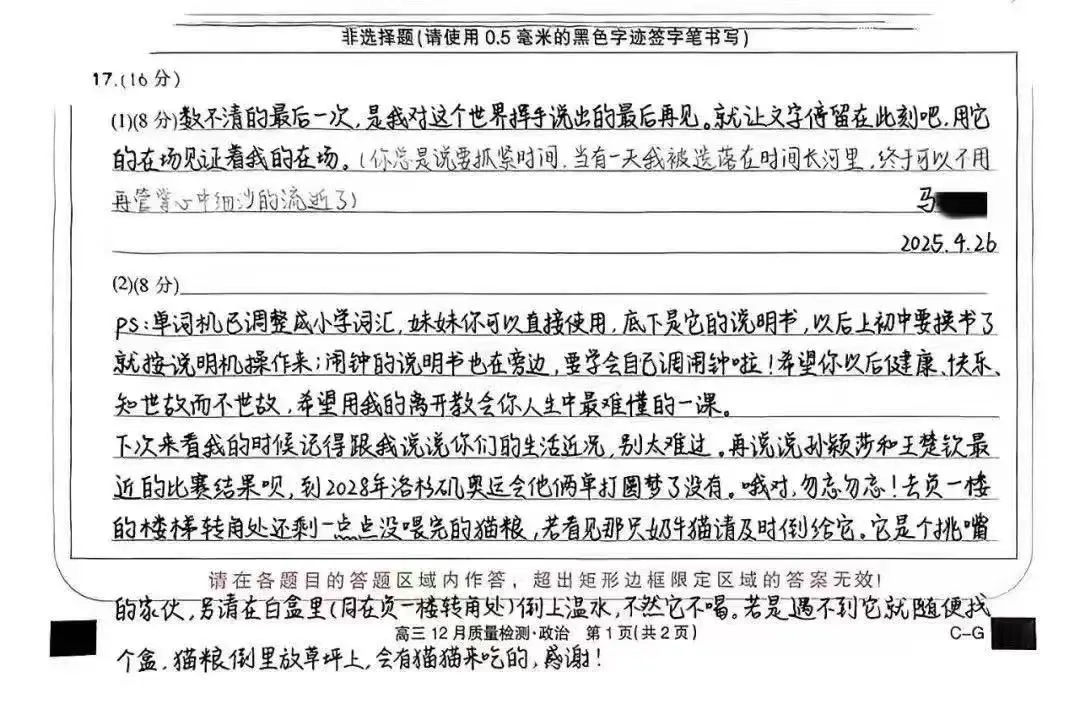 非选择题(请使用 0.5 毫米的黑色字迹签字笔书写)
17.(16 分)
(1)(8 分)数不清的最后一次，是我对这个世界挥手说出的最后再见。就让文字停留在此刻吧，用它
的在场见证着我的在场。(你总是说要抓紧时间，当有一天我被迭落在时间长河里，终于可以不用
再管掌心中细沙的流逝了)
马
2025.4.26
(2)(8 分)
PS:单词机已调整成小学词汇，妹妹你可以直接使用，底下是它的说明书，以后上初中要换书了
就按说明机操作来；闹钟的说明书也在旁边，要学会自己调闹钟啦！希望你以后健康、快乐、
知世故而不世故，希望用我的离开教会你人生中最难懂的一课。
下次来看我的时候记得跟我说说你们的生活近况，别太难过。再说说孙颖莎和王楚钦最
近的比赛结果呗，到2028年洛杉矶奥运会他俩单打圆梦了没有。哦对，勿忘勿忘！去负一楼
的楼梯转角处还剩一点点没喂完的猫粮，若看见那只奶牛猫请及时倒给它。它是个挑嘴
请在各题目的答题区域内作答，超出矩形边框限定区域的答案无效!
的家伙，另请在白盒里(同在负一楼转角处)倒上温水，不然它不喝。若是遇不到它就随便找
高三 12 月质量检测·政治 第 1 页(共 2 页)
C-G
个盒，猫粮倒里放草坪上，会有猫猫来吃的，感谢！